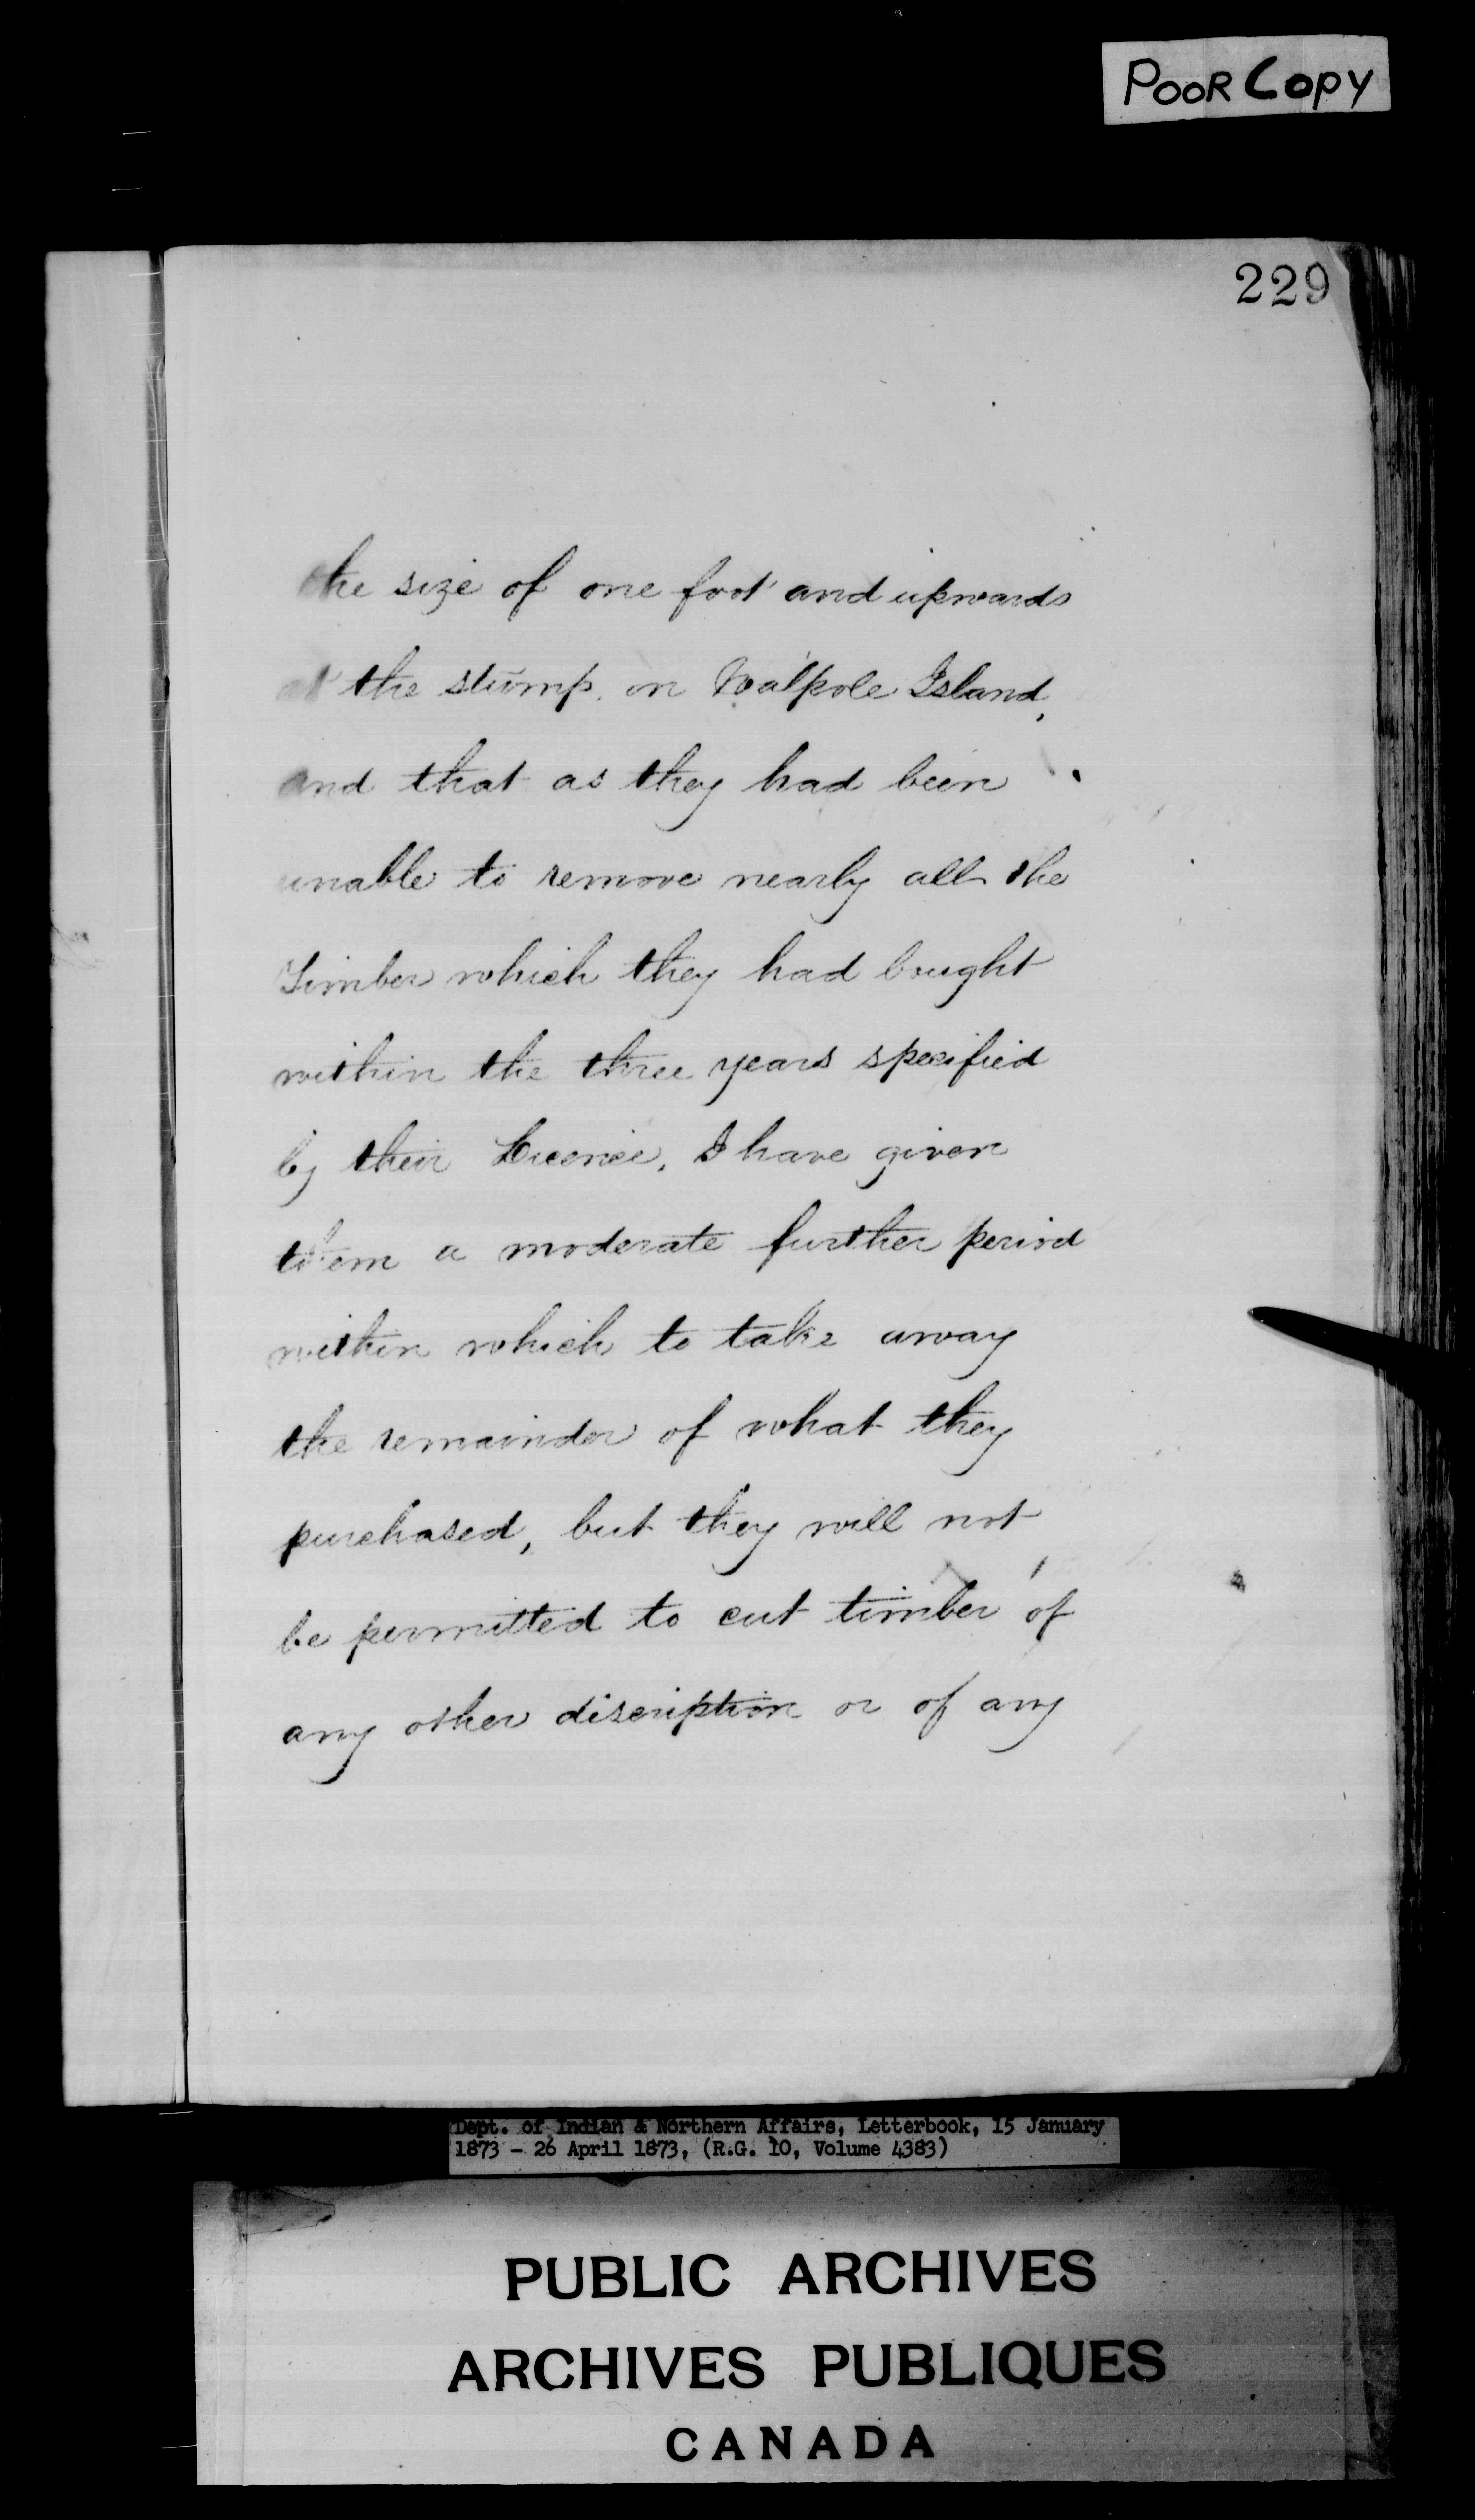 POOR COPY
229
the size of one foot and upwards
at the stump, on Walpole Island,
and that as they had been
unable to remove nearly all the
Timber which they had bought
within the three years specified
by their Licence, I have given
them a moderate further period
within which to take away
the remainder of what they
purchased, but they will not
be permitted to cut timber of
any other discription or of any
Dept. of Indian & Northern Affairs, Letterbook, 15 January
1873 - 26 April 1873, (R.G. 10, Volume 4383)
PUBLIC ARCHIVES
ARCHIVES PUBLIQUES
CANADA